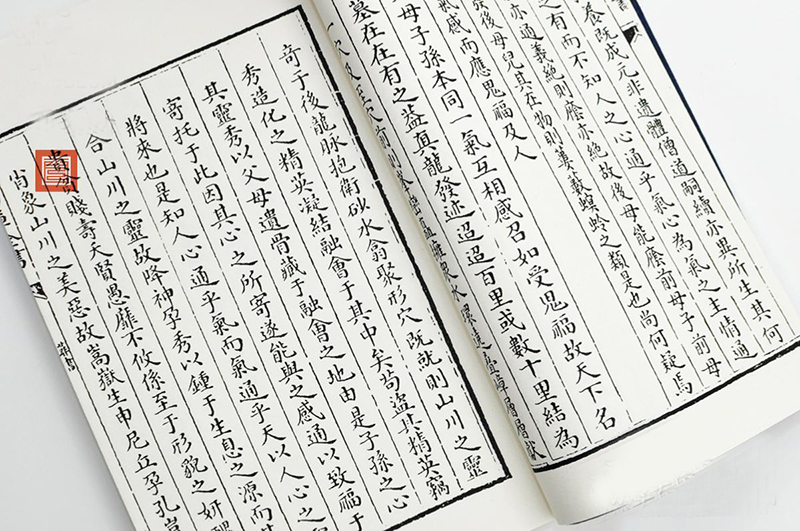 養既成元非遺體僧道嗣續亦異所生其何
之有而不知人之心通乎氣心為氣之主情通
亦通義絕則廕亦絕故後母能廕前母子前母
發後母兒其在物則蔞蔹螟蛉之類是也尚何疑焉
氣感而應鬼福及人
母子孫本同一氣互相感召如受鬼福故天下名
墓在在有之蓋真龍發迹迢迢百里或數十里結為
一穴及至穴前則峯巒矗擁眾水環遶疊嶂層層獻
奇于後龍脉抱衛砂水翕聚形穴既就則山川之靈
秀造化之精英凝結融會于其中矣苟盜其精英竊
其靈秀以父母遺骨藏于融會之地由是子孫之心
寄托于此因其心之所寄遂能與之感通以致福于
將來也是知人心通乎氣而氣通乎天以人心之
合山川之靈故降神孕秀以鍾于生息之源而其
貧賤壽夭賢愚靡不攸係至于形貌之妍醜
肖象山川之美惡故嵩嶽生申尼丘孕孔豈